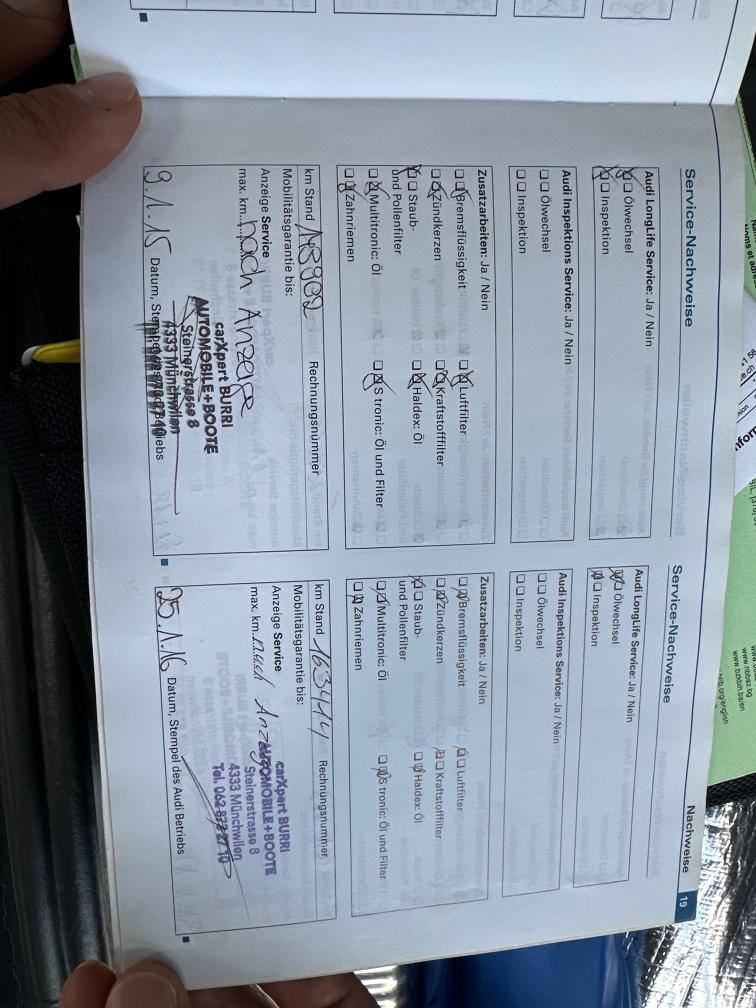 Service-Nachweise
Audi LongLife Service: Ja / Nein
Ölwechsel
Inspektion
Audi Inspektions Service: Ja / Nein
Ölwechsel
Inspektion
Zusatzarbeiten: Ja / Nein
Bremsflüssigkeit
Luftfilter
Zündkerzen
Kraftstofffilter
Staub-
und Pollenfilter
Haldex: Öl
Multitronic: Öl
S tronic: Öl und Filter
Zahnriemen
km Stand
Rechnungsnummer
Mobilitätsgarantie bis:
Anzeige Service
max. km nach Anzeige
carXpert BURRI
AUTOMOBILE+BOOTE
Steinerstrasse 8
4333 Münchwilen
9.1.15 Datum,
Nachweise 19
Service-Nachweise
Audi LongLife Service: Ja / Nein
Ölwechsel
Inspektion
Audi Inspektions Service: Ja / Nein
Ölwechsel
Inspektion
Zusatzarbeiten: Ja / Nein
Bremsflüssigkeit
Luftfilter
Zündkerzen
Kraftstofffilter
Staub-
und Pollenfilter
Haldex: Öl
Multitronic: Öl
S tronic: Öl und Filter
Zahnriemen
km Stand
Rechnungsnummer
Mobilitätsgarantie bis:
Anzeige Service
max. km nach Anzeige
carXpert BURRI
AUTOMOBILE+BOOTE
Steinerstrasse 8
4333 Münchwilen
Tel. 062 873 27 10
25.1.16 Datum, Stempel des Audi Betriebs
www.nbbaz.bg
www.bzkbih.ba/en